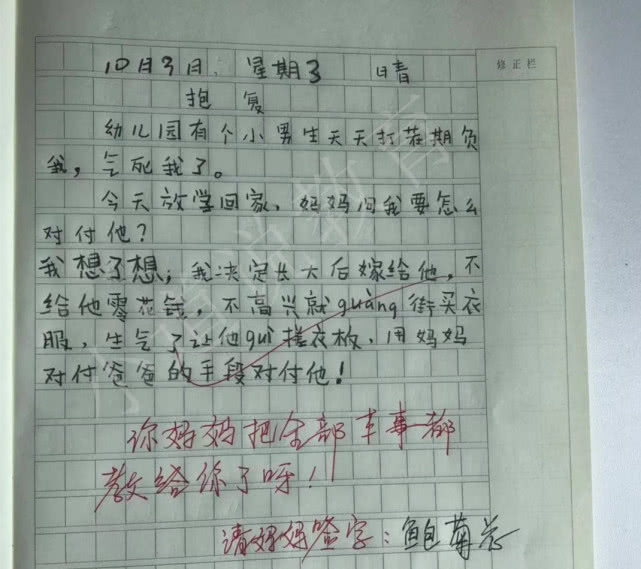 10月3日. 星期3 晴
修正栏
抱复
幼儿园有个小男生天天打茬期负
我，气死我了。
今天放学回家，妈妈问我要怎么
对付他？
我想了想，我决定长大后嫁给他，不
给他零花钱，不高兴就guàng街买衣
服，生气了让他guì搓衣板，用妈妈
对付爸爸的手段对付他！
你妈妈把全部本事都
教给你了呀！
请妈妈签字：鲍菊芯